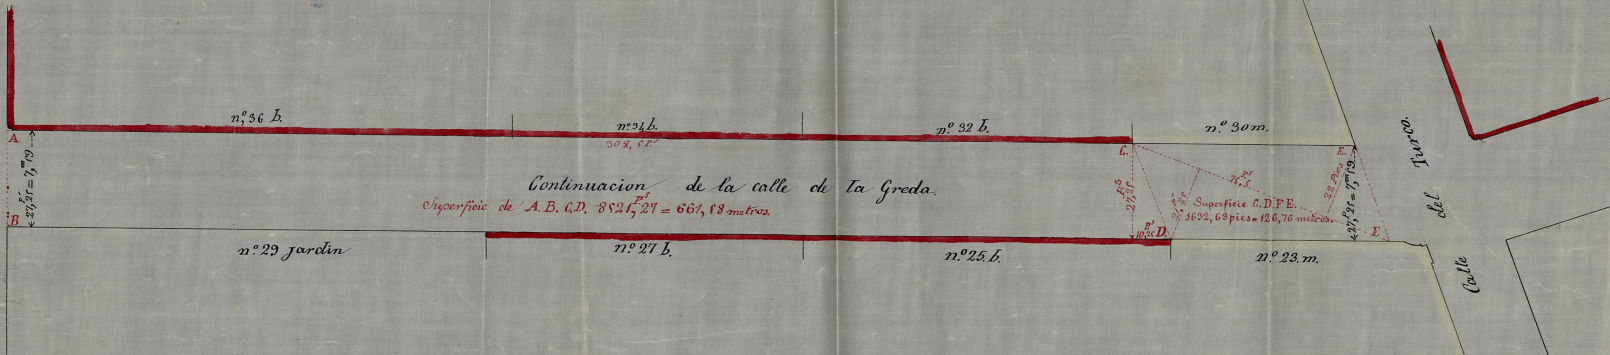 n.º 36 b.
n.º 34 b.
308,5 Pˢ
n.º 32 b.
n.º 30 m.
A.
C.
E.
27,25 = 7,ᵐ59
Continuacion de la calle de la Greda.
Superficie de A. B. C. D. 8521,27 Pˢ = 661,58 metros.
27,25 Pˢ
Pˢ
22 Pies
27,25 = 7,ᵐ59
Superficie C. D. F E.
1632,68 pies = 126,76 metros.
B
10,25 Pˢ
D.
F.
n.º 29 jardin
n.º 27 b.
n.º 25. b.
n.º 23. m.
Calle del Turco.